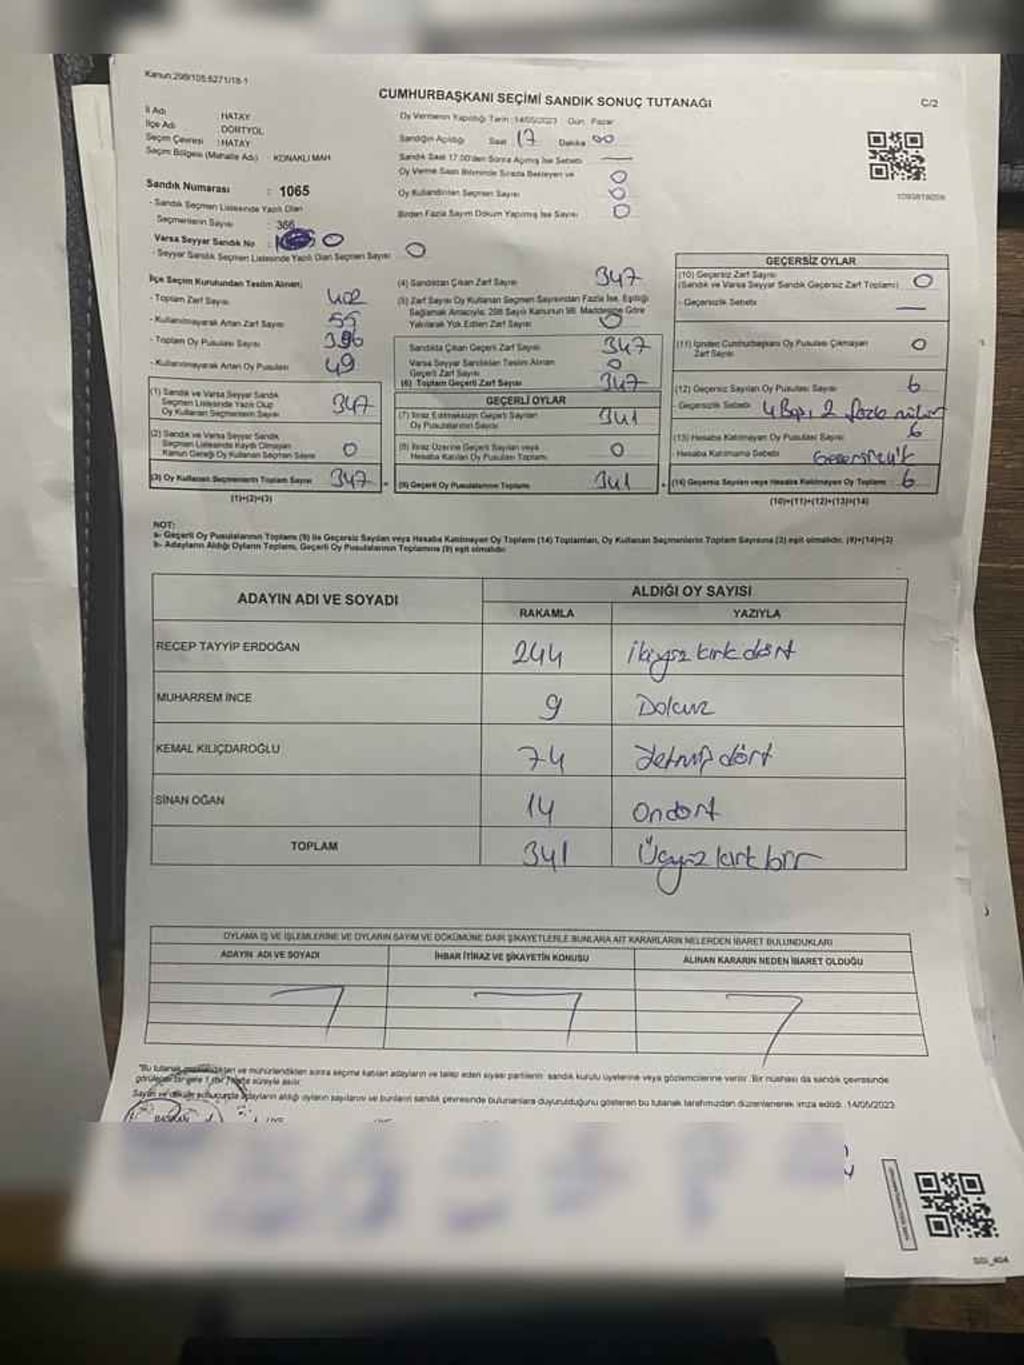 Kanun:298/105-6271/18-1
CUMHURBAŞKANI SEÇİMİ SANDIK SONUÇ TUTANAĞI
C/2
İl Adı : HATAY
İlçe Adı : DÖRTYOL
Seçim Çevresi : HATAY
Seçim Bölgesi (Mahalle Adı) : KONAKLI MAH.
Oy Vermenin Yapıldığı Tarih :14/05/2023 Gün: Pazar
Sandığın Açıldığı Saat 17 Dakika 00
Sandık Saat 17.00'den Sonra Açılmış İse Sebebi —
Oy Verme Saati Bitiminde Sırada Bekleyen ve 0
Oy Kullandırılan Seçmen Sayısı 0
Birden Fazla Sayım Döküm Yapılmış İse Sayısı 0
Sandık Numarası : 1065
- Sandık Seçmen Listesinde Yazılı Olan
Seçmenlerin Sayısı : 366
Varsa Seyyar Sandık No : 0
- Seyyar Sandık Seçmen Listesinde Yazılı Olan Seçmen Sayısı 0
İlçe Seçim Kurulundan Teslim Alınan;
- Toplam Zarf Sayısı 402
- Kullanılmayarak Artan Zarf Sayısı 55
- Toplam Oy Pusulası Sayısı 396
- Kullanılmayarak Artan Oy Pusulası 49
(1) Sandık ve Varsa Seyyar Sandık
Seçmen Listesinde Yazılı Olup
Oy Kullanan Seçmenlerin Sayısı 347
(2) Sandık ve Varsa Seyyar Sandık
Seçmen Listesinde Kayıtlı Olmayan
Kanun Gereği Oy Kullanan Seçmen Sayısı 0
(3) Oy Kullanan Seçmenlerin Toplam Sayısı 347
(1)+(2)=(3)
(4) Sandıktan Çıkan Zarf Sayısı 347
(5) Zarf Sayısı Oy Kullanan Seçmen Sayısından Fazla İse, Eşitliği
Sağlamak Amacıyla; 298 Sayılı Kanunun 98. Maddesine Göre
Yakılarak Yok Edilen Zarf Sayısı 0
Sandıkta Çıkan Geçerli Zarf Sayısı 347
Varsa Seyyar Sandıktan Teslim Alınan
Geçerli Zarf Sayısı 0
(6) Toplam Geçerli Zarf Sayısı 347
GEÇERLİ OYLAR
(7) İtiraz Edilmeksizin Geçerli Sayılan
Oy Pusulalarının Sayısı 341
(8) İtiraz Üzerine Geçerli Sayılan veya
Hesaba Katılan Oy Pusulası Toplamı 0
(9) Geçerli Oy Pusulalarının Toplamı 341
GEÇERSİZ OYLAR
(10) Geçersiz Zarf Sayısı
(Sandık ve Varsa Seyyar Sandık Geçersiz Zarf Toplamı) 0
- Geçersizlik Sebebi —
(11) İçinden Cumhurbaşkanı Oy Pusulası Çıkmayan
Zarf Sayısı 0
(12) Geçersiz Sayılan Oy Pusulası Sayısı 6
- Geçersizlik Sebebi 2 fazla mühür
(13) Hesaba Katılmayan Oy Pusulası Sayısı 6
- Hesaba Katılmama Sebebi
(14) Geçersiz Sayılan veya Hesaba Katılmayan Oy Toplamı 6
(10)+(11)+(12)+(13)=(14)
NOT:
a- Geçerli Oy Pusulalarının Toplamı (9) ile Geçersiz Sayılan veya Hesaba Katılmayan Oy Toplamı (14) Toplamları, Oy Kullanan Seçmenlerin Toplam Sayısına (3) eşit olmalıdır. (9)+(14)=(3)
b- Adayların Aldığı Oyların Toplamı, Geçerli Oy Pusulalarının Toplamına (9) eşit olmalıdır.
ADAYIN ADI VE SOYADI
ALDIĞI OY SAYISI
RAKAMLA YAZIYLA
RECEP TAYYİP ERDOĞAN 244 İkiyüz kırk dört
MUHARREM İNCE 9 Dokuz
KEMAL KILIÇDAROĞLU 74 Yetmiş dört
SİNAN OĞAN 14 Ondört
TOPLAM 341 Üçyüz kırk bir
OYLAMA İŞ VE İŞLEMLERİNE VE OYLARIN SAYIM VE DÖKÜMÜNE DAİR ŞİKAYETLERLE BUNLARA AİT KARARLARIN NELERDEN İBARET BULUNDUKLARI
ADAYIN ADI VE SOYADI İHBAR İTİRAZ VE ŞİKAYETİN KONUSU ALINAN KARARIN NEDEN İBARET OLDUĞU
ve mühürlendikten sonra seçime katılan adayların ve talep eden siyasi partilerin sandık kurulu üyelerine veya gözlemcilerine verilir. Bir nüshası da sandık çevresinde
süreyle asılır.
Sayım ve döküm sonucunda adayların aldığı oyların sayılarını ve bunların sandık çevresinde bulunanlara duyurulduğunu gösteren bu tutanak tarafımızdan düzenlenerek imza edildi. 14/05/2023
BAŞKAN